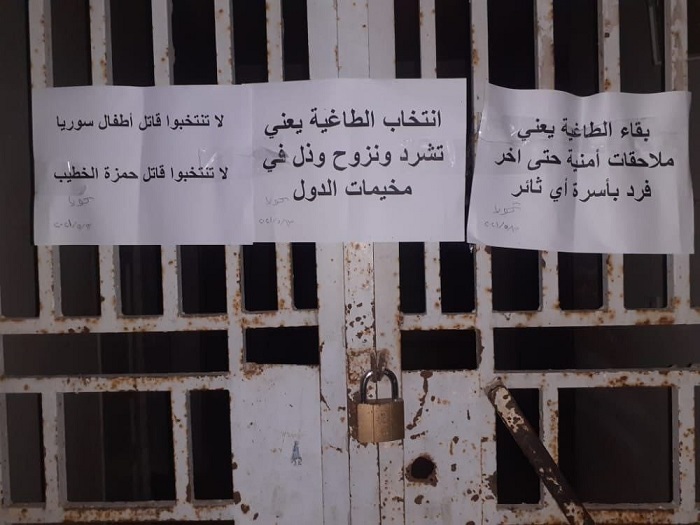 بقاء الطاغية يعني
ملاحقات أمنية حتى اخر
فرد بأسرة أي ثائر
انتخاب الطاغية يعني
تشرد ونزوح وذل في
مخيمات الدول
لا تنتخبوا قاتل أطفال سوريا
لا تنتخبوا قاتل حمزة الخطيب